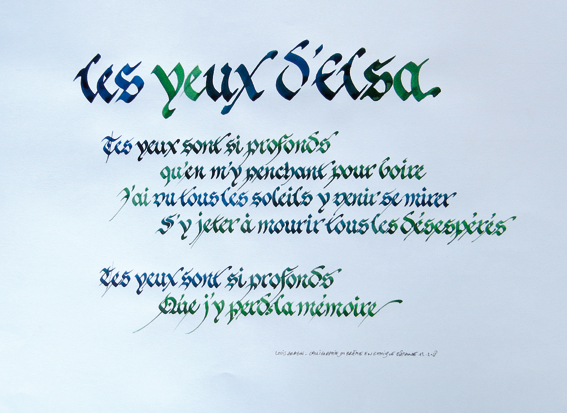 les yeux d'Elsa.
Tes yeux sont si profonds
qu'en m'y penchant pour boire
J'ai vu tous les soleils y venir se mirer
S'y jeter à mourir tous les désespérés
Tes yeux sont si profonds
Que j'y perds la mémoire